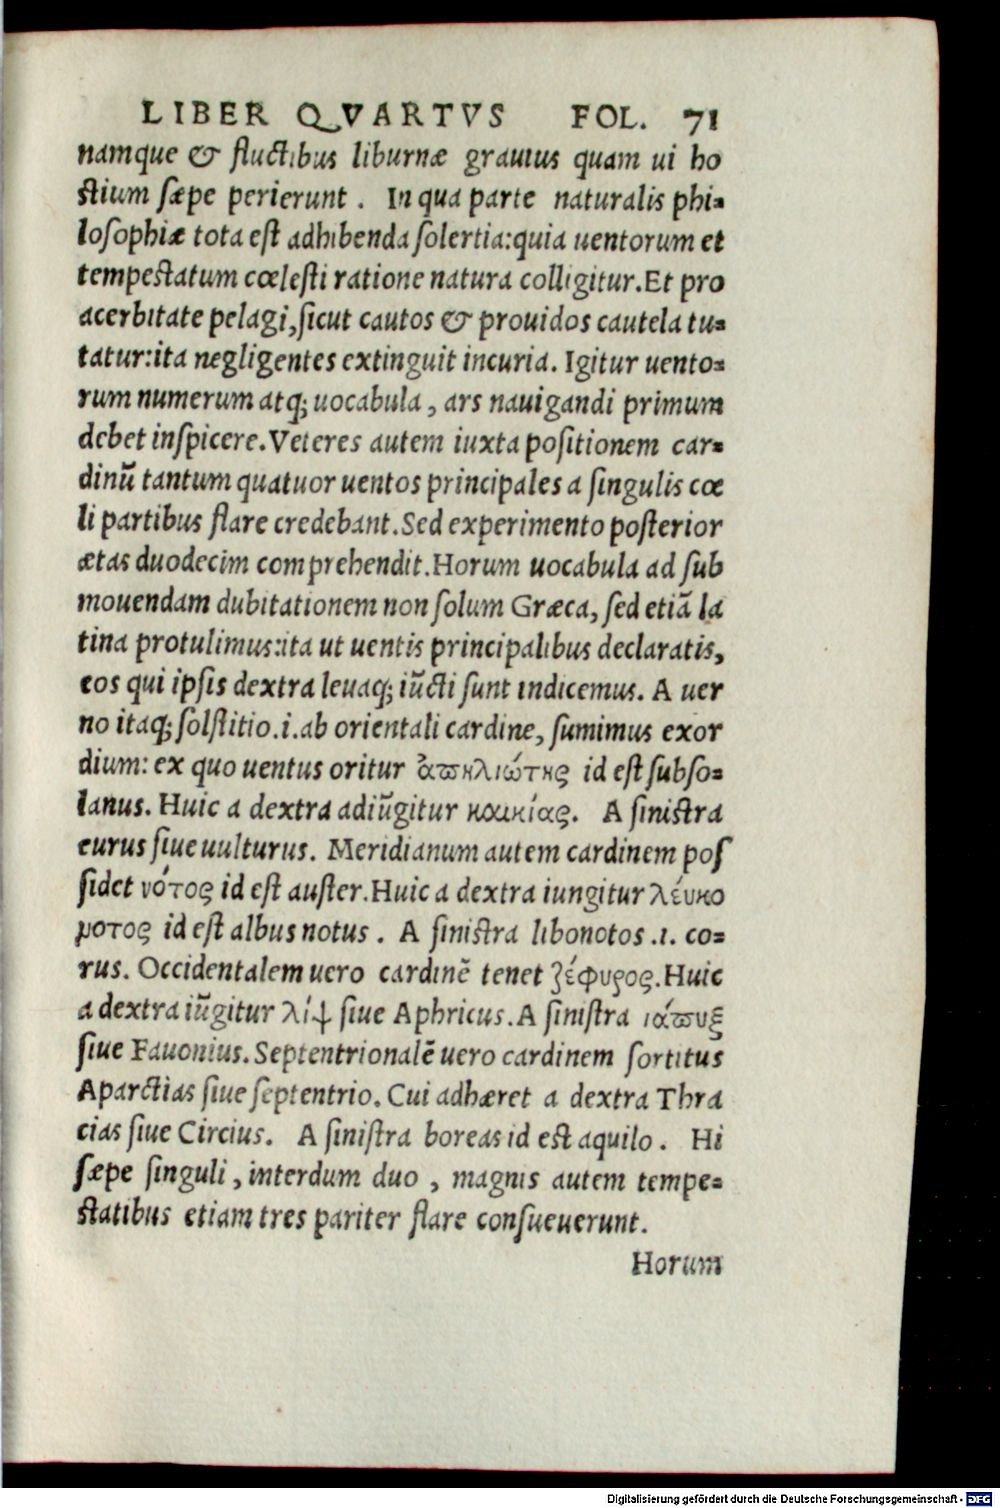 LIBER QVARTVS FOL. 71
namque & fluctibus liburnæ grauius quam ui ho
ſtium ſæpe perierunt . In qua parte naturalis phi-
loſophiæ tota eſt adhibenda ſolertia:quia uentorum et
tempeſtatum cœleſti ratione natura colligitur.Et pro
acerbitate pelagi,ſicut cautos & prouidos cautela tu-
tatur:ita negligentes extinguit incuria. Igitur uento-
rum numerum atq; uocabula , ars nauigandi primum
debet inſpicere.Veteres autem iuxta poſitionem car-
dinū tantum quatuor uentos principales a ſingulis cœ
li partibus flare credebant.Sed experimento poſterior
ætas duodecim comprehendit.Horum uocabula ad ſub
mouendam dubitationem non ſolum Græca, ſed etiā la
tina protulimus:ita ut uentis principalibus declaratis,
eos qui ipſis dextra leuaq; iūcti ſunt indicemus. A uer
no itaq; ſolſtitio.i.ab orientali cardine, ſumimus exor
dium: ex quo uentus oritur ἀϖηλιώτης id eſt ſubſo-
lanus. Huic a dextra adiūgitur καικίας. A ſiniſtra
eurus ſiue uulturus. Meridianum autem cardinem poſ
ſidet νότος id eſt auſter.Huic a dextra iungitur λέυκο
ροτος id eſt albus notus . A ſiniſtra libonotos .i. co-
rus. Occidentalem uero cardinē tenet ζέφυρος.Huic
a dextra iūgitur λίψ ſiue Aphricus.A ſiniſtra ιάϖυξ
ſiue Fauonius.Septentrionalē uero cardinem ſortitus
Aparctias ſiue ſeptentrio. Cui adhæret a dextra Thra
cias ſiue Circius. A ſiniſtra boreas id eſt aquilo . Hi
ſæpe ſinguli , interdum duo , magnis autem tempe-
ſtatibus etiam tres pariter flare conſueuerunt.
Horum
Digitalisierung gefördert durch die Deutsche Forschungsgemeinschaft - DFG